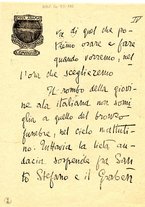 IV
va di quel che po-
tremo osare e fare
quando vorremo, nel-
l'ora che sceglieremo
Il rombo della giovi-
ne ala italiana non somi-
glia a quello del bronzo
funebre, nel cielo mattuti-
no. Tuttavia la lieta au-
dacia sospende fra San-
to Stefano e il Graben